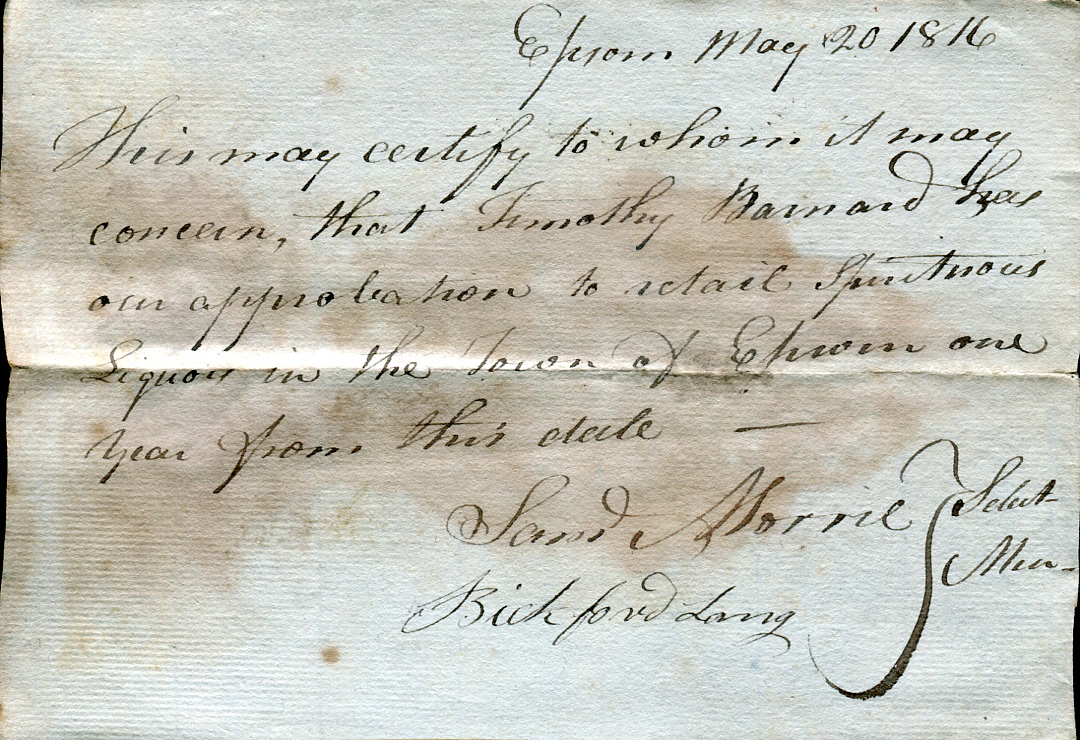 Epsom May 20 1816
This may certify to whom it may
concern, that Timothy Barnard has
our approbation to retail Spirituous
Liquors in the Town of Epsom one
year from this date —
Saml Morril } Select
Men-
Bickford Lang